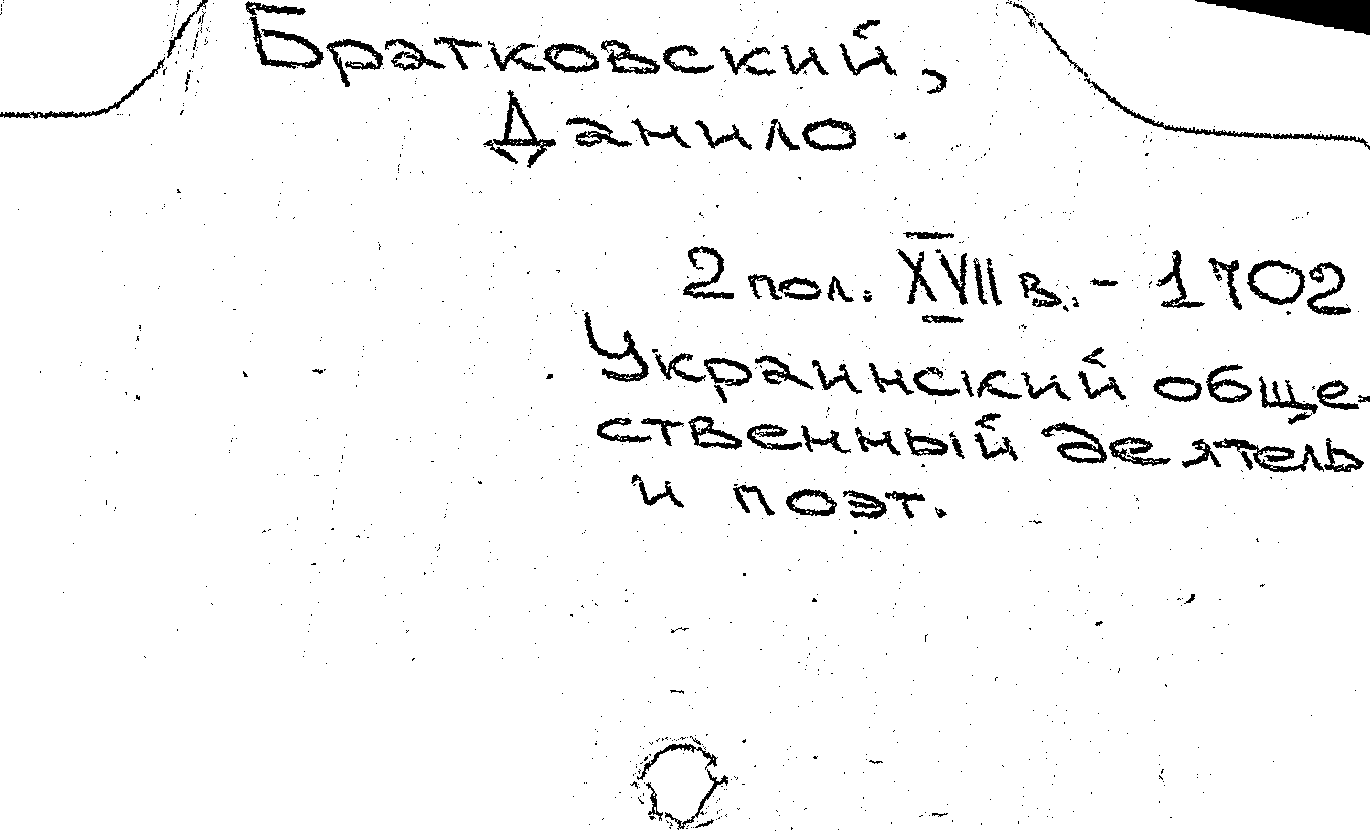 Братковский,
Данило.
2 пол. XVII в. - 1702
Украинский обще-
ственный деятель
и поэт.